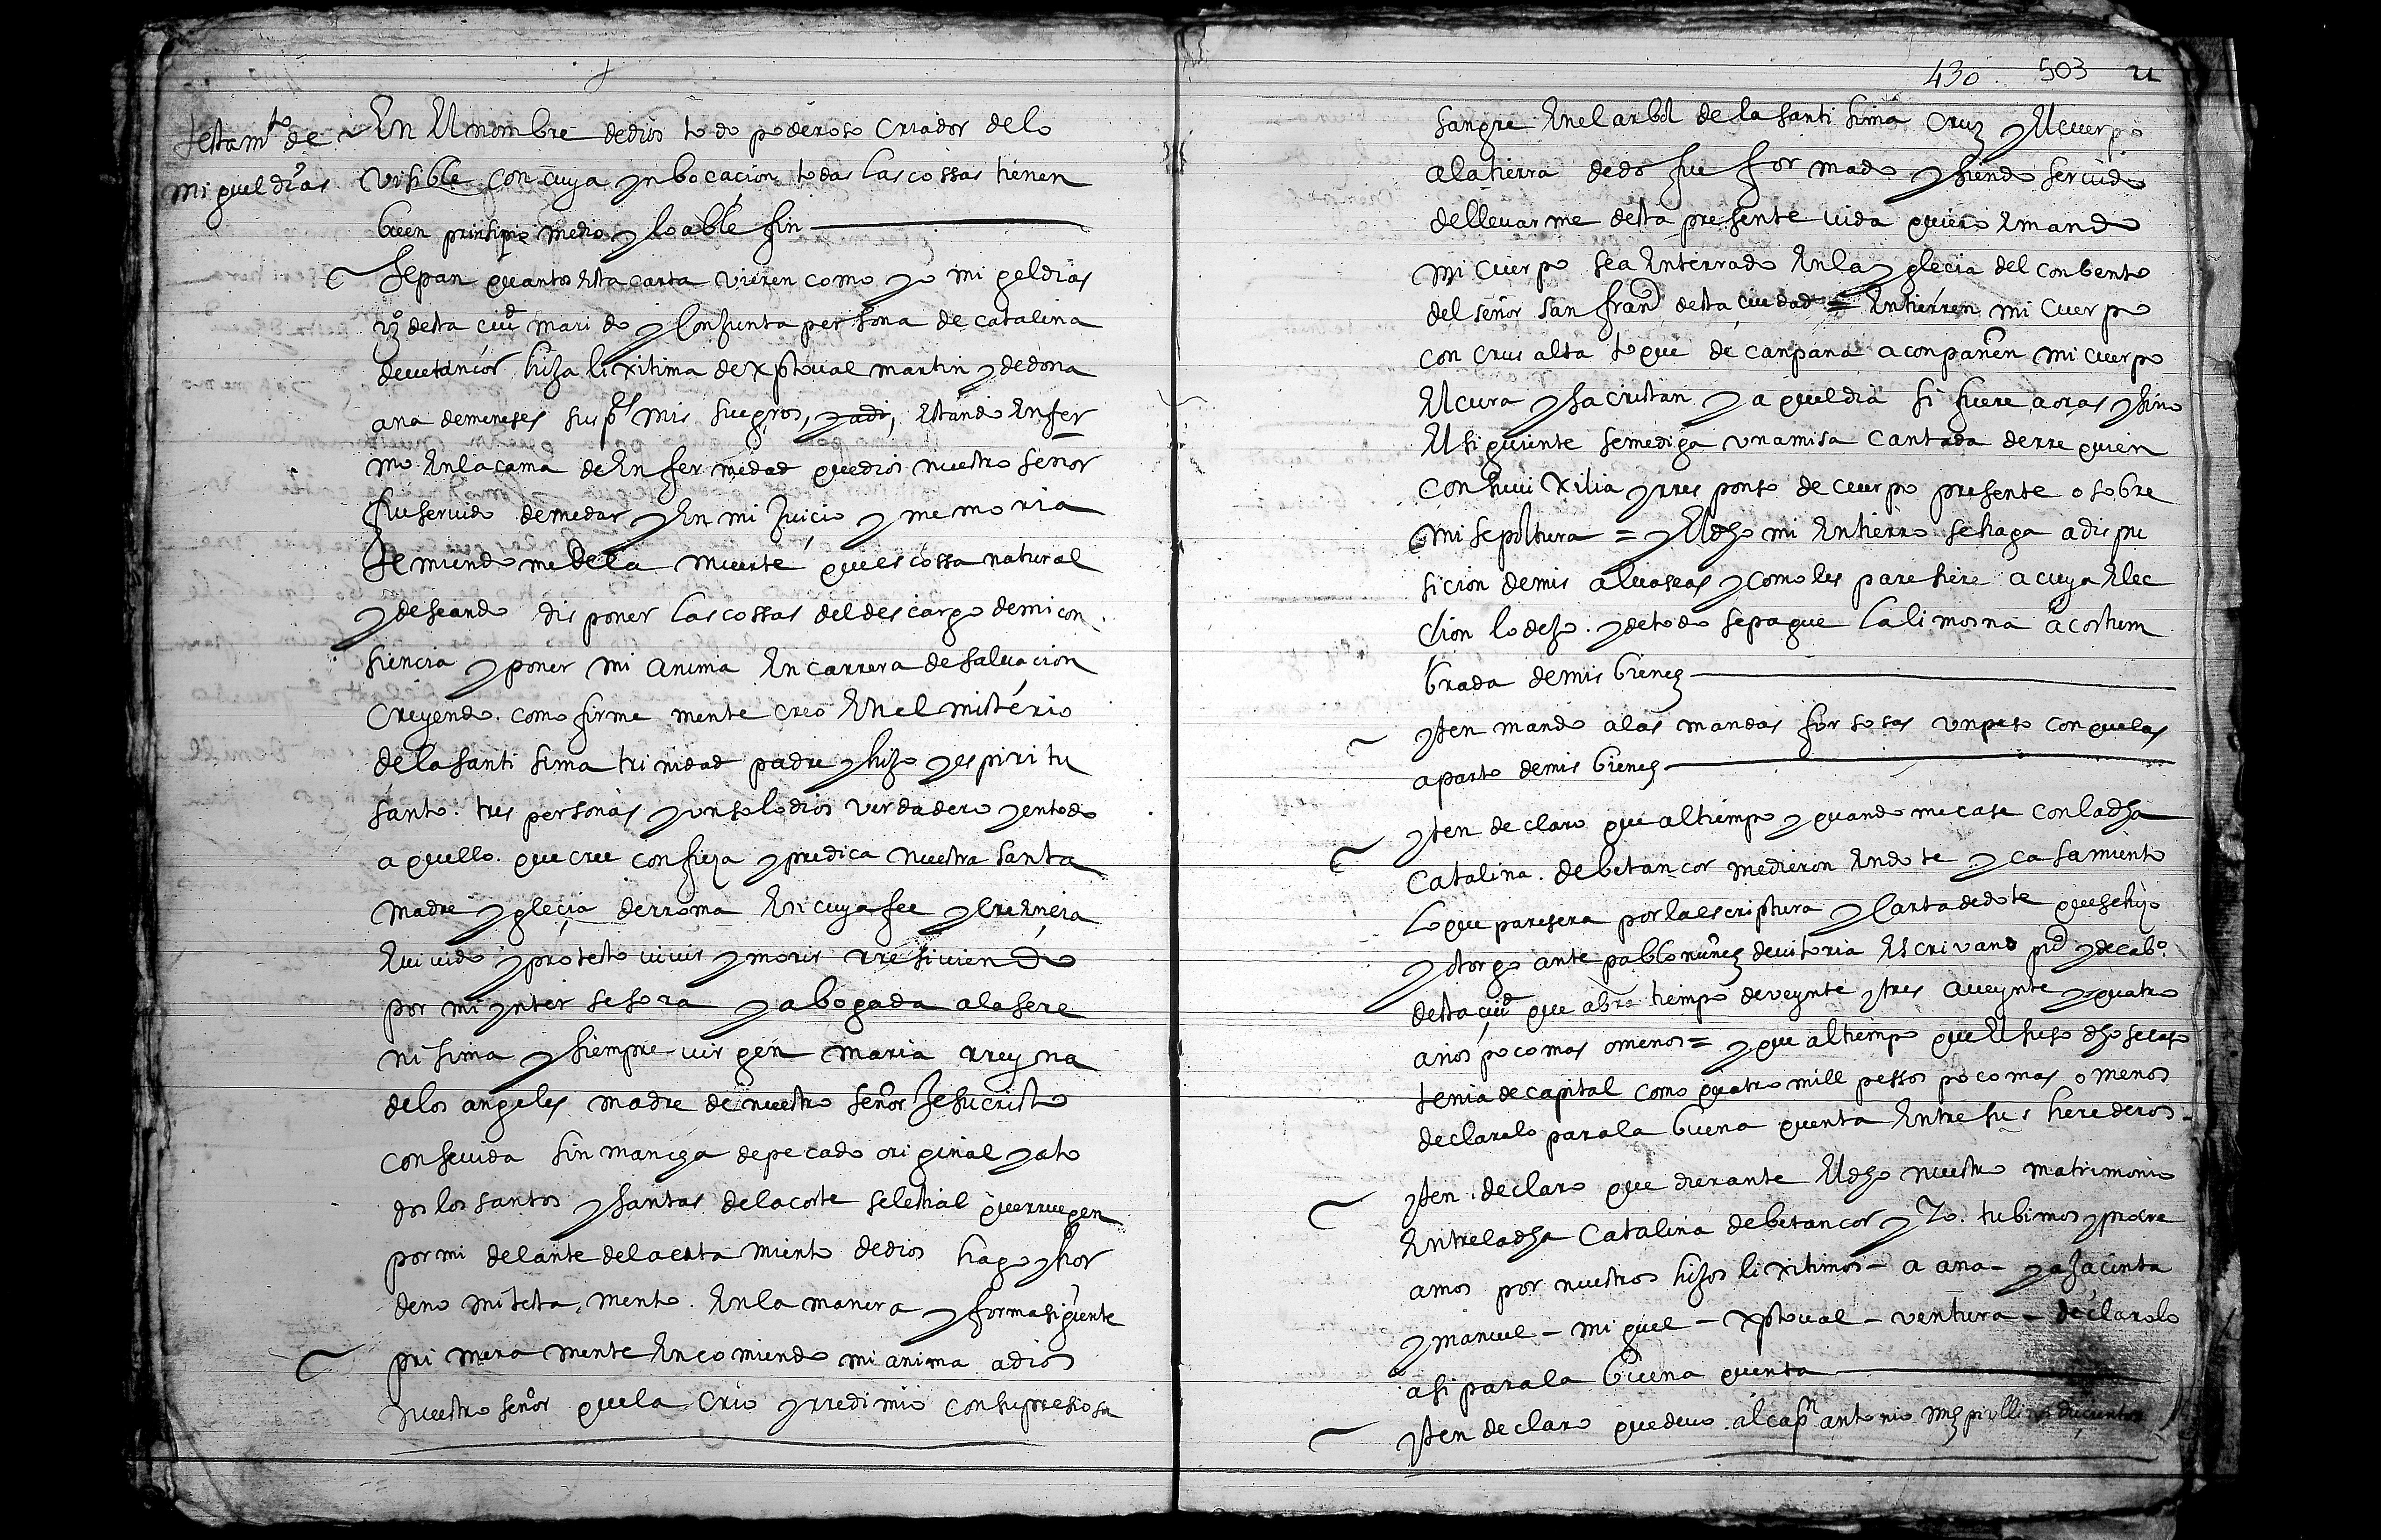 testamto de
miguel dias
En El nombre de dios todo poderoso criador de lo
visible con cuya ynbocacion todas las cossas tienen
buen prinsipio medio y loable fin
Sepan quantos esta carta vieren como yo migel dias
vzo desta ciud marido y Conjunta persona de catalina
de uetancor hija lixitima de xptoual martin y de dona
ana de meneses sus ps mis suegros, estando Enfer
mo En la cama de Enfermedad que dios nuestro señor
fue seruido de me dar y En mi Juicio y memoria
temiendome de la muerte que es cossa natural
y deseando disponer las cossas del descargo de mi con
siencia y poner mi anima En carrera de saluacion
Creyendo como firme mente creo En el misterio
de la santisima trinidad padre y hijo y espiritu
santo tres personas y un solo dios verdadero y en todo
aquello que cree confiesa y predica nuestra santa
madre yglecia de rroma En cuya fee y creencia
E uiuido y protesto uiuir y morir rresiuiendo
por mi yntersesora y abogada a la sere
nisima y siempre uirgen maria rreyna
de los angeles madre de nuestro señor Jesucristo
conseuida sin mancha de pecado original y a to
dos los santos y santas de la corte selestial que rrueguen
por mi delante del acatamiento de dios hago y hor
deno mi testamento En la manera y forma siguiente
primera mente Encomiendo mi anima a dios
nuestro señor que la Crio y rredimio con su presiosa
430 503
sangre En el arbol de la santisima Cruz y El cuerpo
a la tierra de do fue formado y siendo seruido
de lleuarme desta presente uida quiero E mando
mi cuerpo sea Enterrado En la yglecia del conbento
del señor san frando desta ciudad = Entierren mi Cuerpo
con crus alta toque de canpana aconpañen mi cuerpo
El cura y sacristan y aquel dia si fuere a oras y sino
El siguiente se me diga una misa cantada de rrequien
Con su uixilia y rresponso de cuerpo presente o sobre
mi sepoltura = y El dho mi Entierro se haga a dispu
sicion de mis aluaseas y como les paresiere a cuya Elec
cion lo dejo y de todo se pague la limosna acostum
brada de mis bienes
yten mando a las mandas forsosas un peso con que las
aparto de mis bienes
yten declaro que al tiempo y quando me case con la dha
Catalina de betancor me dieron En dote y casamiento
lo que paresera por la escriptura y Carta de dote que se hizo
y otorgo ante pablo nuñes de uitoria Escriuano puco y de cabo
desta ciud que abra tiempo de veynte y tres a ueynte y quatro
años poco mas o menos = y que al tiempo que El suso dho se caso
tenia de capital como quatro mill pessos poco mas o menos
declaralo para la buena quenta Entre sus herederos
yten declaro que durante El dho nuestro matrimonio
Entre la dha Catalina de betancor y Yo tubimos y procre
amos por nuestros hijos lixitimos - a ana - y a Jacinta
y manuel - miguel - xptoual - ventura - declaralo
asi para la buena quenta
yten declaro que deuo al capn antonio